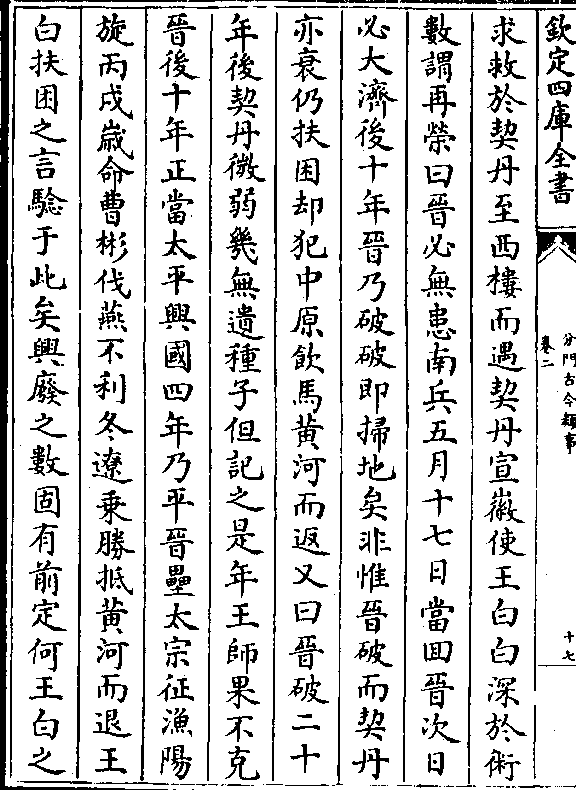 欽定四庫全書
分門古今類事
卷二
十七
求救於契丹至西樓而遇契丹宣徽使王白白深於術
數謂再榮曰晉必無患南兵五月十七日當囬晉次日
必大濟後十年晉乃破破即掃地矣非惟晉破而契丹
亦衰仍扶困却犯中原飲馬黄河而返又曰晉破二十
年後契丹微弱幾無遺種子但記之是年王師果不克
晉後十年正當太平興國四年乃平晉壘太宗征漁陽
旋丙戌嵗命曹彬伐燕不利冬遼乗勝抵黄河而退王
白扶困之言驗于此矣興廢之數固有前定何王白之